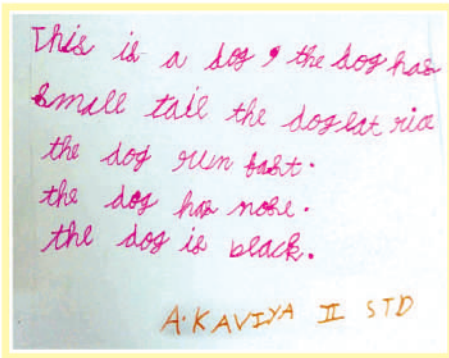 This is a dog , the dog has
small tail the dog eat rice
the dog run fast.
the dog has nose.
the dog is black.
A.KAVIYA II STD